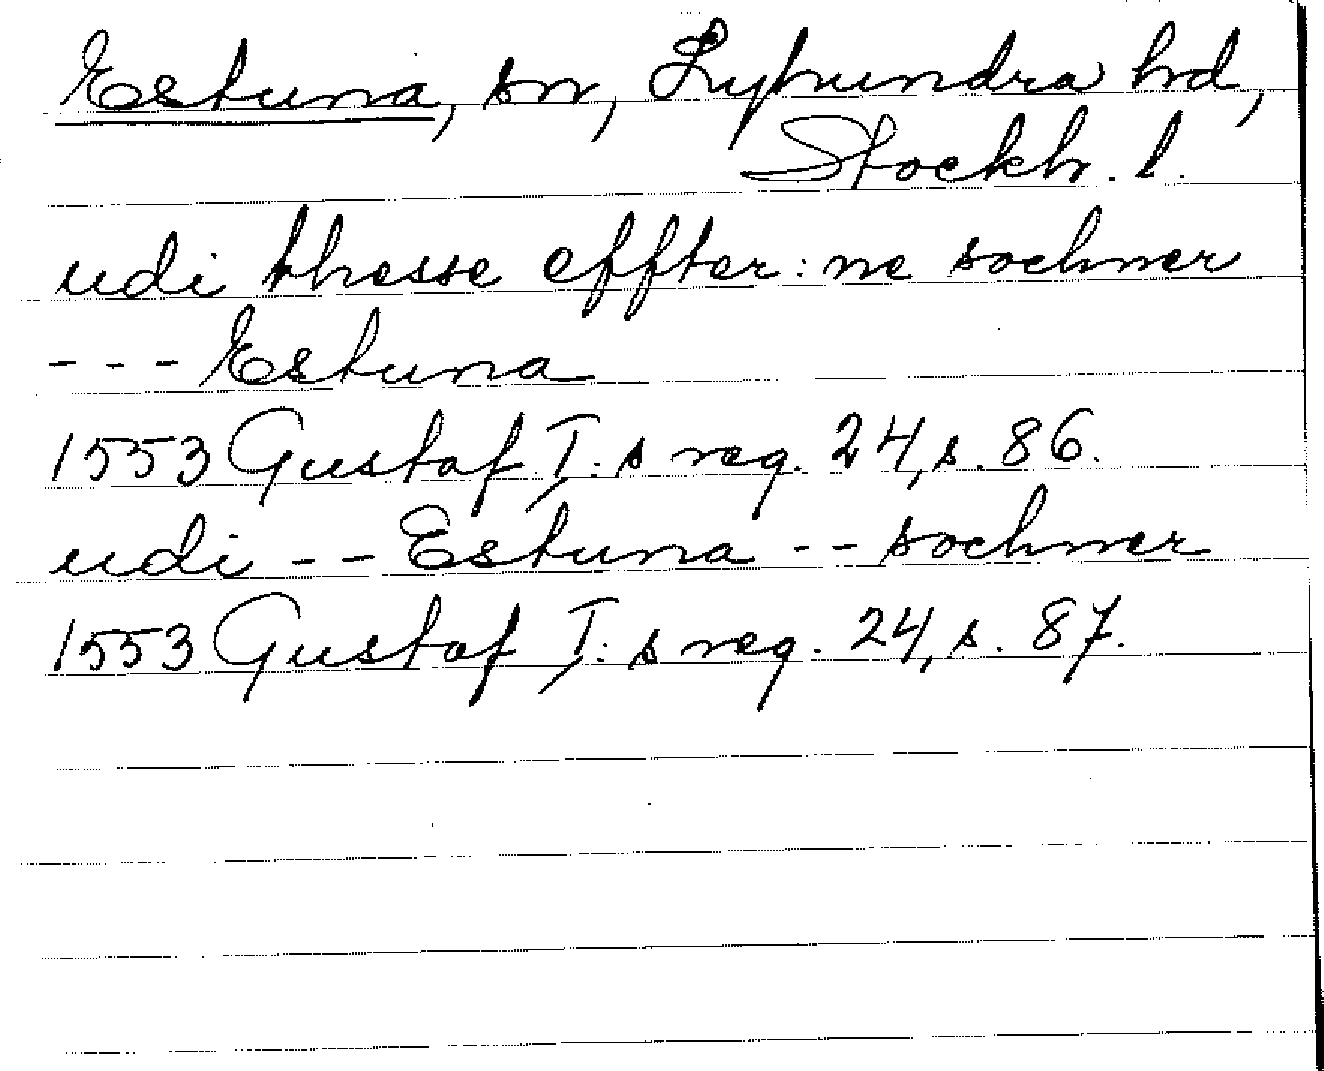 Estuna, sn, Lyhundra hd,
Stockh. l.
udi thesse effter: ne sochner
- - - Estuna
1553 Gustaf I: s reg. 24, s. 86.
udi - - Estuna - - sochner
1553 Gustaf I: s reg. 24, s. 87.